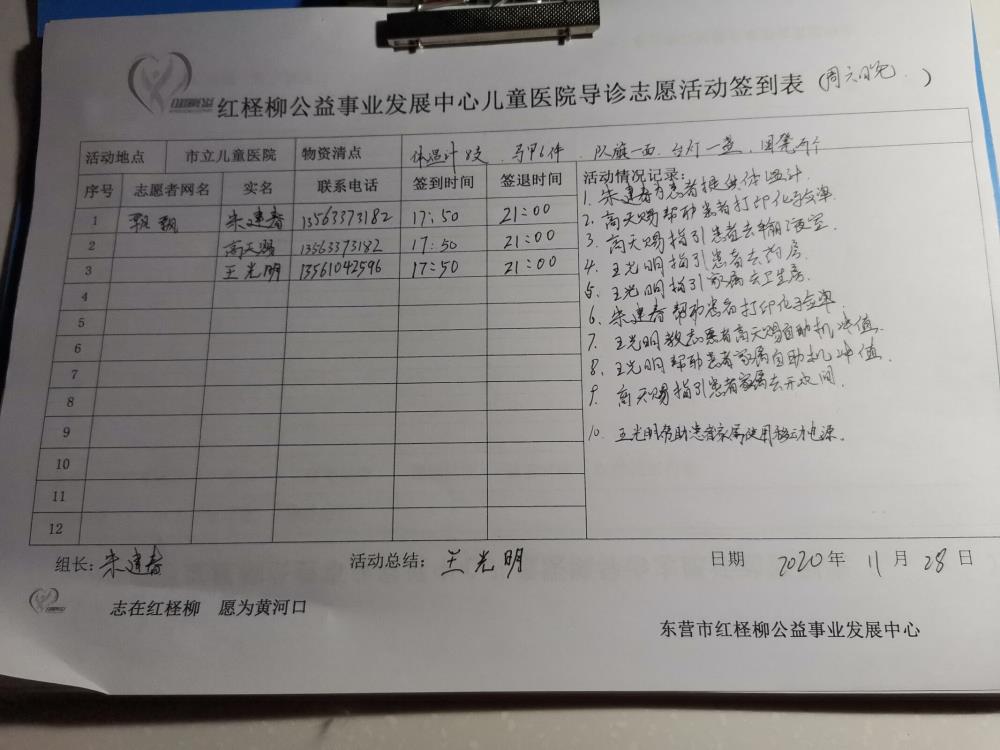 红柽柳公益事业发展中心儿童医院导诊志愿活动签到表(周六晚)
活动地点 市立儿童医院 物资清点 体温计8支 马甲6件 队旗一面 台灯一盏 圆凳两个
序号 志愿者网名 实名 联系电话 签到时间 签退时间 活动情况记录:
1 飘飘 朱建春 13563373182 17:50 21:00
2 高天赐 13563373182 17:50 21:00
3 王光明 13561042596 17:50 21:00
4
5
6
7
8
9
10
11
12
1. 朱建春为患者提供体温计.
2. 高天赐帮助患者打印化验单.
3. 高天赐指引患者去输液室.
4. 王光明指引患者去药房.
5. 王光明指引家属去卫生房.
6. 朱建春帮助患者打印化验单.
7. 王光明教志愿者高天赐自助机冲值.
8. 王光明帮助患者家属自助机冲值.
9. 高天赐指引患者家属去开水间.
10. 王光明帮助患者家属使用移动电源。
组长:朱建春 活动总结:王光明 日期 2020年11月28日
志在红柽柳 愿为黄河口
东营市红柽柳公益事业发展中心